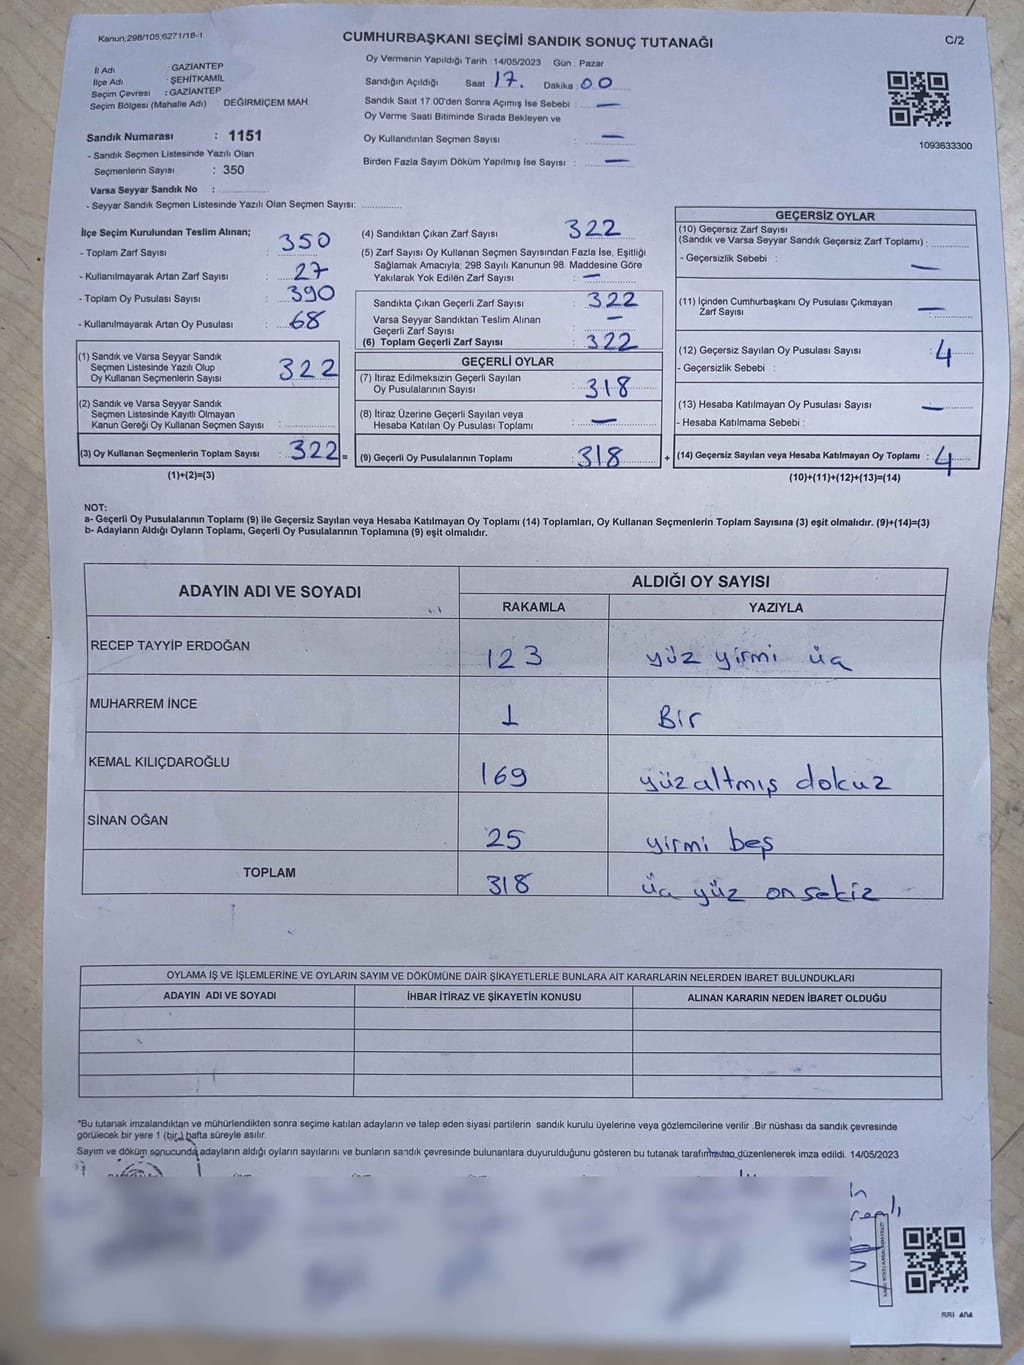 Kanun;298/105;6271/18-1
CUMHURBAŞKANI SEÇİMİ SANDIK SONUÇ TUTANAĞI
C/2
İl Adı : GAZİANTEP
İlçe Adı : ŞEHİTKAMİL
Seçim Çevresi : GAZİANTEP
Seçim Bölgesi (Mahalle Adı) : DEĞİRMİÇEM MAH.
Sandık Numarası : 1151
- Sandık Seçmen Listesinde Yazılı Olan
Seçmenlerin Sayısı : 350
Varsa Seyyar Sandık No :
- Seyyar Sandık Seçmen Listesinde Yazılı Olan Seçmen Sayısı:
Oy Vermenin Yapıldığı Tarih : 14/05/2023 Gün : Pazar
Sandığın Açıldığı Saat : 17. Dakika : 00
Sandık Saat 17.00'den Sonra Açımış İse Sebebi : —
Oy Verme Saati Bitiminde Sırada Bekleyen ve
Oy Kullandırılan Seçmen Sayısı : —
Birden Fazla Sayım Döküm Yapılmış İse Sayısı : —
1093633300
İlçe Seçim Kurulundan Teslim Alınan;
- Toplam Zarf Sayısı : 350
- Kullanılmayarak Artan Zarf Sayısı : 27
- Toplam Oy Pusulası Sayısı : 390
- Kullanılmayarak Artan Oy Pusulası : 68
(1) Sandık ve Varsa Seyyar Sandık
Seçmen Listesinde Yazılı Olup
Oy Kullanan Seçmenlerin Sayısı : 322
(2) Sandık ve Varsa Seyyar Sandık
Seçmen Listesinde Kayıtlı Olmayan
Kanun Gereği Oy Kullanan Seçmen Sayısı :
(3) Oy Kullanan Seçmenlerin Toplam Sayısı : 322 =
(1)+(2)=(3)
(4) Sandıktan Çıkan Zarf Sayısı 322
(5) Zarf Sayısı Oy Kullanan Seçmen Sayısından Fazla İse, Eşitliği
Sağlamak Amacıyla; 298 Sayılı Kanunun 98. Maddesine Göre
Yakılarak Yok Edilen Zarf Sayısı : —
Sandıkta Çıkan Geçerli Zarf Sayısı : 322
Varsa Seyyar Sandıktan Teslim Alınan
Geçerli Zarf Sayısı : —
(6) Toplam Geçerli Zarf Sayısı : 322
GEÇERLİ OYLAR
(7) İtiraz Edilmeksizin Geçerli Sayılan
Oy Pusulalarının Sayısı : 318
(8) İtiraz Üzerine Geçerli Sayılan veya
Hesaba Katılan Oy Pusulası Toplamı : —
(9) Geçerli Oy Pusulalarının Toplamı : 318 +
GEÇERSİZ OYLAR
(10) Geçersiz Zarf Sayısı
(Sandık ve Varsa Seyyar Sandık Geçersiz Zarf Toplamı) :
- Geçersizlik Sebebi : —
(11) İçinden Cumhurbaşkanı Oy Pusulası Çıkmayan
Zarf Sayısı : —
(12) Geçersiz Sayılan Oy Pusulası Sayısı : 4
- Geçersizlik Sebebi :
(13) Hesaba Katılmayan Oy Pusulası Sayısı : —
- Hesaba Katılmama Sebebi :
(14) Geçersiz Sayılan veya Hesaba Katılmayan Oy Toplamı : 4
(10)+(11)+(12)+(13)=(14)
NOT:
a- Geçerli Oy Pusulalarının Toplamı (9) ile Geçersiz Sayılan veya Hesaba Katılmayan Oy Toplamı (14) Toplamları, Oy Kullanan Seçmenlerin Toplam Sayısına (3) eşit olmalıdır. (9)+(14)=(3)
b- Adayların Aldığı Oyların Toplamı, Geçerli Oy Pusulalarının Toplamına (9) eşit olmalıdır.
ADAYIN ADI VE SOYADI
ALDIĞI OY SAYISI
RAKAMLA YAZIYLA
RECEP TAYYİP ERDOĞAN 123 yüz yirmi üç
MUHARREM İNCE 1 Bir
KEMAL KILIÇDAROĞLU 169 yüzaltmış dokuz
SİNAN OĞAN 25 yirmi beş
TOPLAM 318 üç yüz onsekiz
OYLAMA İŞ VE İŞLEMLERİNE VE OYLARIN SAYIM VE DÖKÜMÜNE DAİR ŞİKAYETLERLE BUNLARA AİT KARARLARIN NELERDEN İBARET BULUNDUKLARI
ADAYIN ADI VE SOYADI İHBAR İTİRAZ VE ŞİKAYETİN KONUSU ALINAN KARARIN NEDEN İBARET OLDUĞU
*Bu tutanak imzalandıktan ve mühürlendikten sonra seçime katılan adayların ve talep eden siyasi partilerin sandık kurulu üyelerine veya gözlemcilerine verilir .Bir nüshası da sandık çevresinde
görülecek bir yere 1 (bir ) hafta süreyle asılır.
Sayım ve döküm sonucunda adayların aldığı oyların sayılarını ve bunların sandık çevresinde bulunanlara duyurulduğunu gösteren bu tutanak tarafımızdan düzenlenerek imza edildi. 14/05/2023